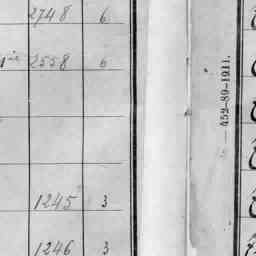 2748 6
2558 6
1245 3
1246 3
452-89-1911.